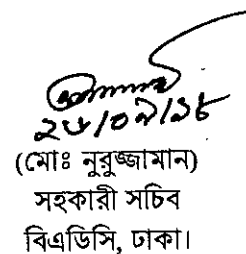 ২৬/০৯/১৮
(মোঃ নুরুজ্জামান)
সহকারী সচিব
বিএডিসি, ঢাকা।